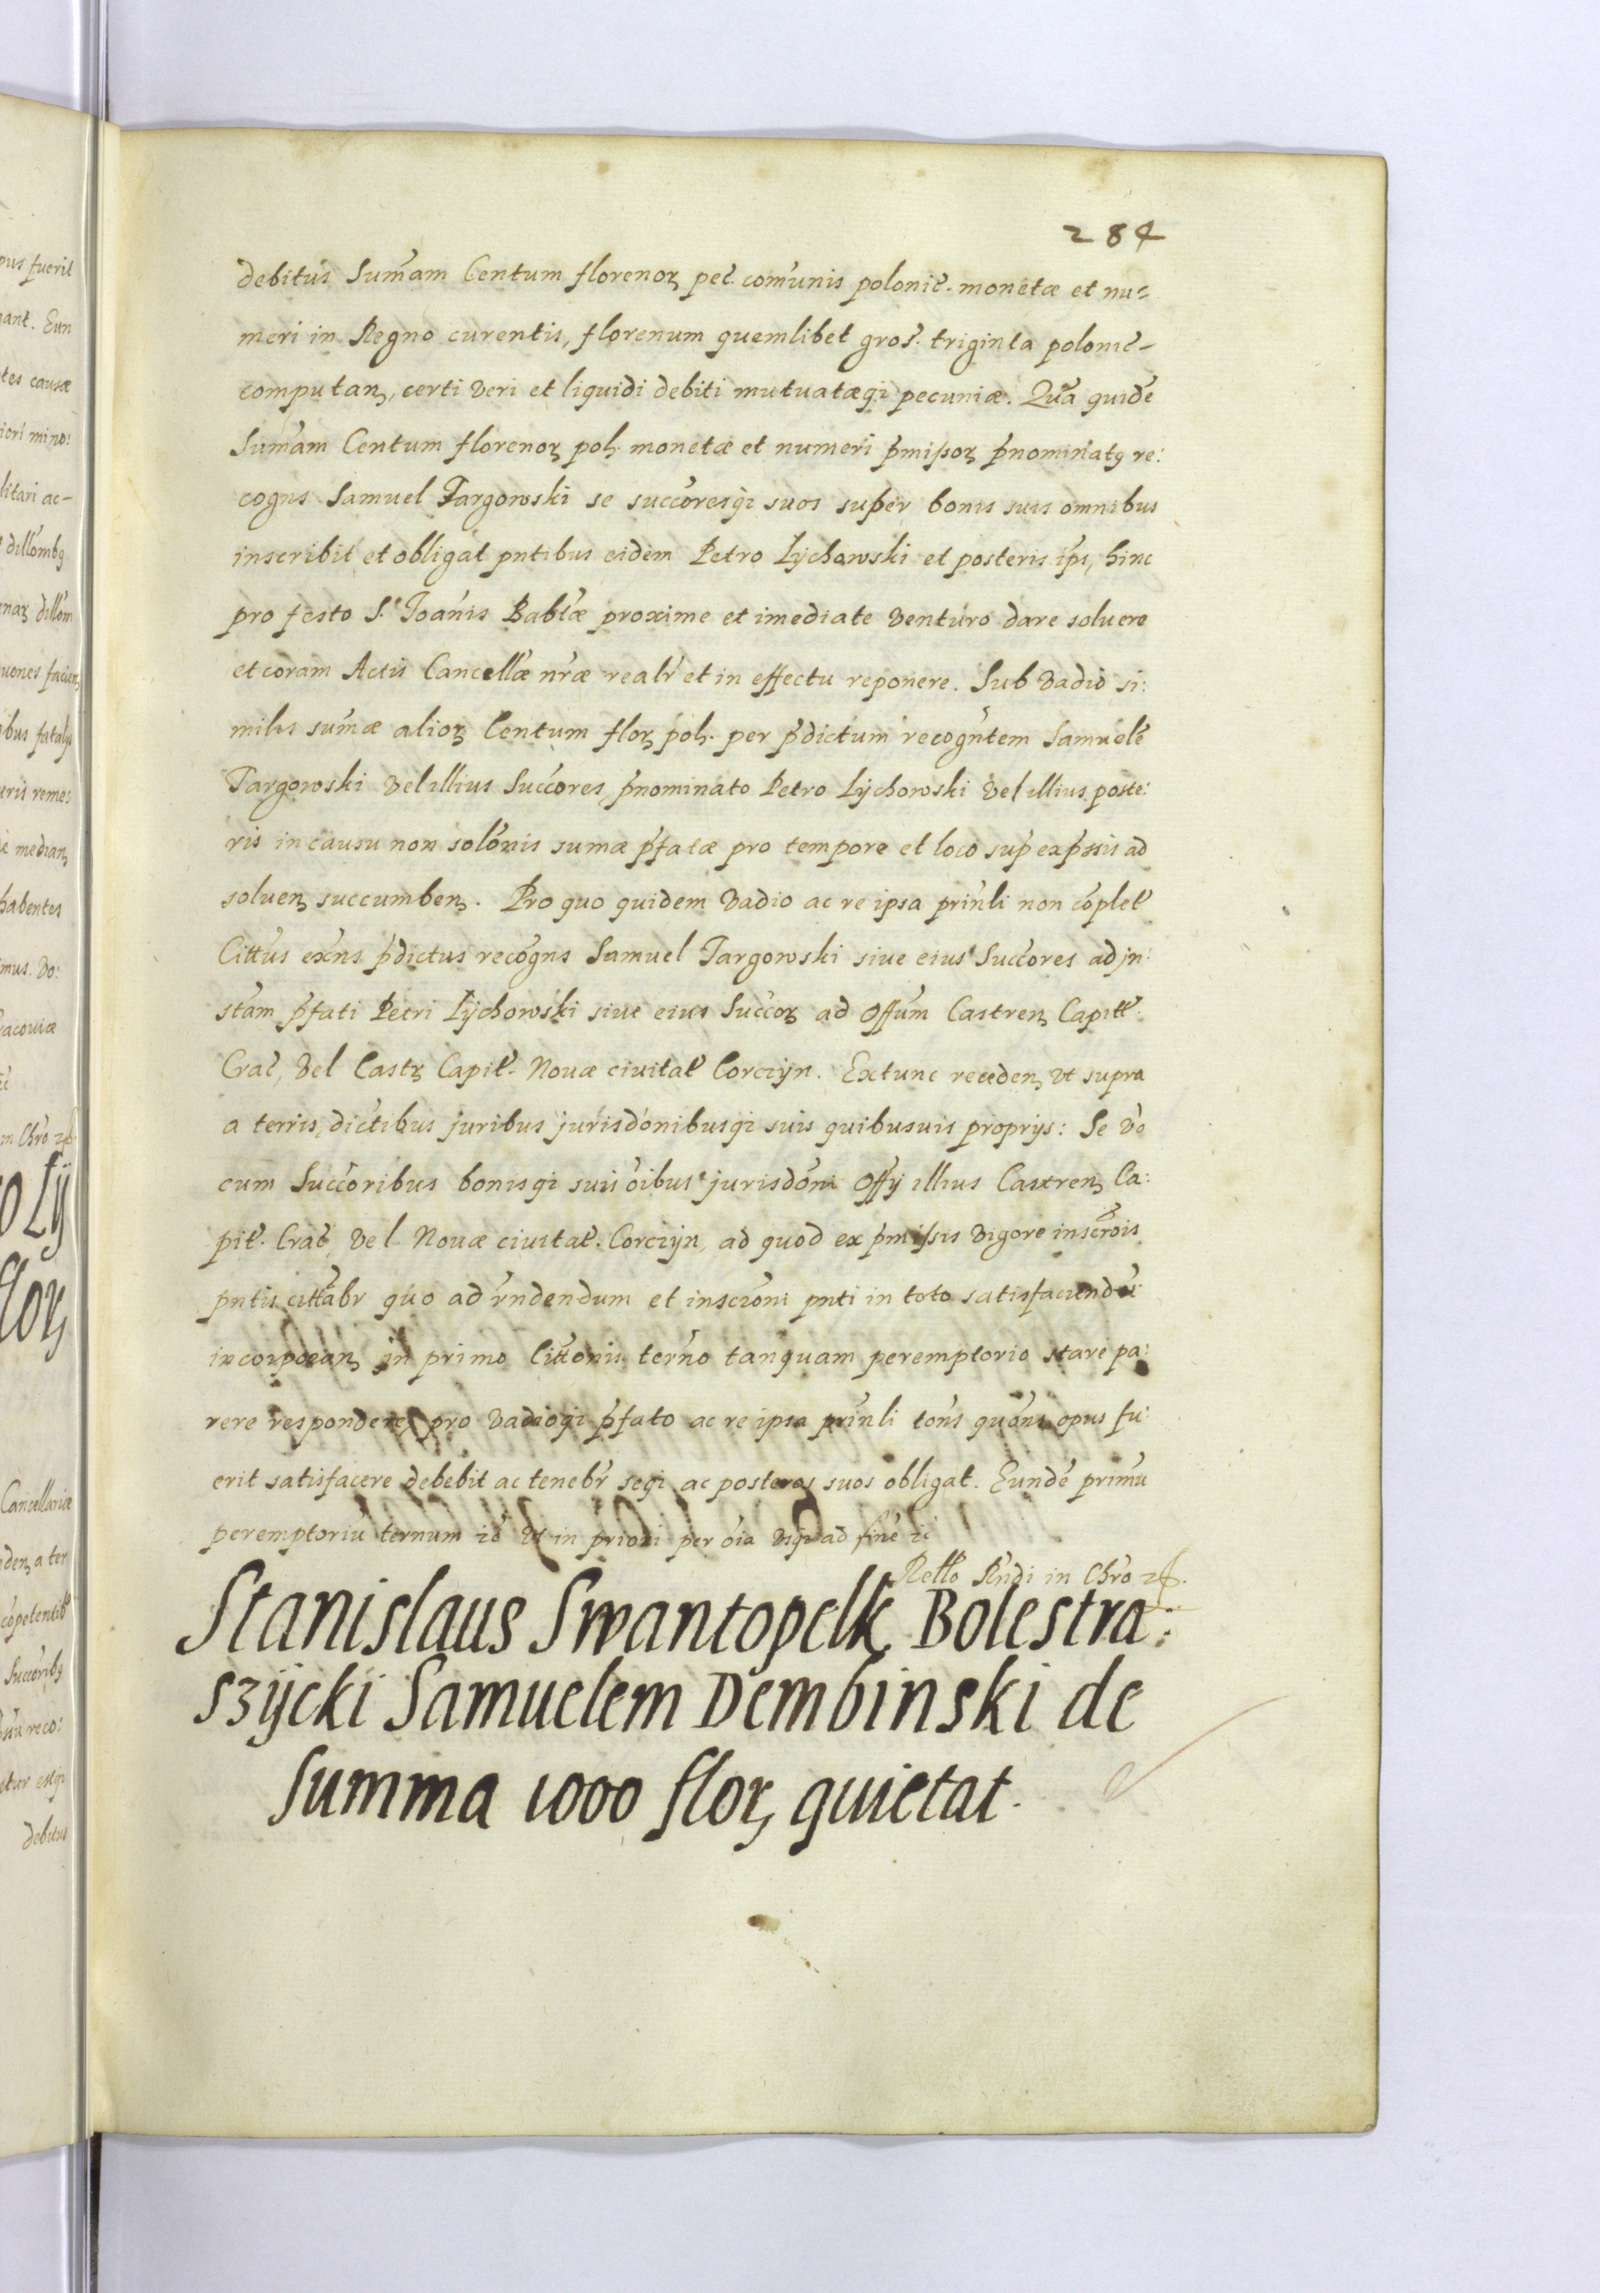 284
debitus Sum̃am Centum florenoꝝ pec̃. com̃unis polonic̃. monetæ et nu-
meri in Regno curentis, florenum quemlibet gros̃. triginta polonic̃-
computanꝝ, certi veri et liquidi debiti mutuatæqꝫ pecuniæ. Quã quidẽ
Sum̃am Centum florenoꝝ polꝝ monetæ et numeri p̃mißoꝝ p̃nominatꝯ re:
cogns Samuel Targowski se succ̃oresqꝫ suos super bonis suis omnibus
inscribit et obligat pñtibus eidem Petro Lÿchowski et posteris ip̃s, hinc
pro festo S. Ioãnis Babt̃æ proxime et im̃ediate venturo dare soluere
et coram Actis Cancellæ̃ nr̃æ realr̃ et in effectu reponere. Sub vadio si:
milis sum̃æ alioꝝ Centum floꝝ polꝝ. per p̃dictum recogñtem Samuelẽ
Targowski vel illius Succ̃ores p̃nominato Petro Lÿchowski vel illius poste:
ris in causu non solõnis sum̃æ p̃fatæ pro tempore et loco sup̃ exp̃ssis ad
soluenꝝ succumbenꝝ. Pro quo quidem vadio ac re ipsa prin̄li non cõplet̃
Citt̃us exñs p̃dictus recogñs Samuel Targowski siue eius Succ̃ores ad jn:
stam̃ p̃fati Petri Lÿchowski siue eius Succ̃oꝝ ad Off̃um Castrenꝝ Capitt̃.
Crac̃, vel Castꝝ Capit̃. Nouæ ciuitat̃ Corczÿn. Extunc recedenꝝ vt supra
a terris, dict̃ibus juribus jurisdõnibusqꝫ suis quibusuis proprijs: Se vo
cum Succ̃oribus bonisqꝫ suis õibus jurisdõni Off̃ij illius Castrenꝝ Ca:
pit̃. Crac̃, vel Nouæ ciuitat̃. Corczÿn, ad quod ex p̃mißis vigore inscr̃ois
pñtis citt̃abr̃ quo ad r̃ndendum et inscr̃oni pñti in toto satisfaciendũ
incorporanꝝ in primo litt̃onis ter̃no tanquam peremptorio stare pa:
rere respondere, pro vadioqꝫ p̃fato ac re ipsa prin̄li tot̃ns quõns opus fu:
erit satisfacere debebit ac tenebr̃ seqꝫ ac posteros suos obligat. Eundẽ primũ
peremptoriũ ternum ic̃ vt in priori per õia vsqꝫ ad finẽ ic̃
Rell̃o Rñdi in Chr̃o
Stanislaus Swantopelk Bolestra:
szÿcki Samuelem Dembinski de
Summa 1000 floꝝ quietat.